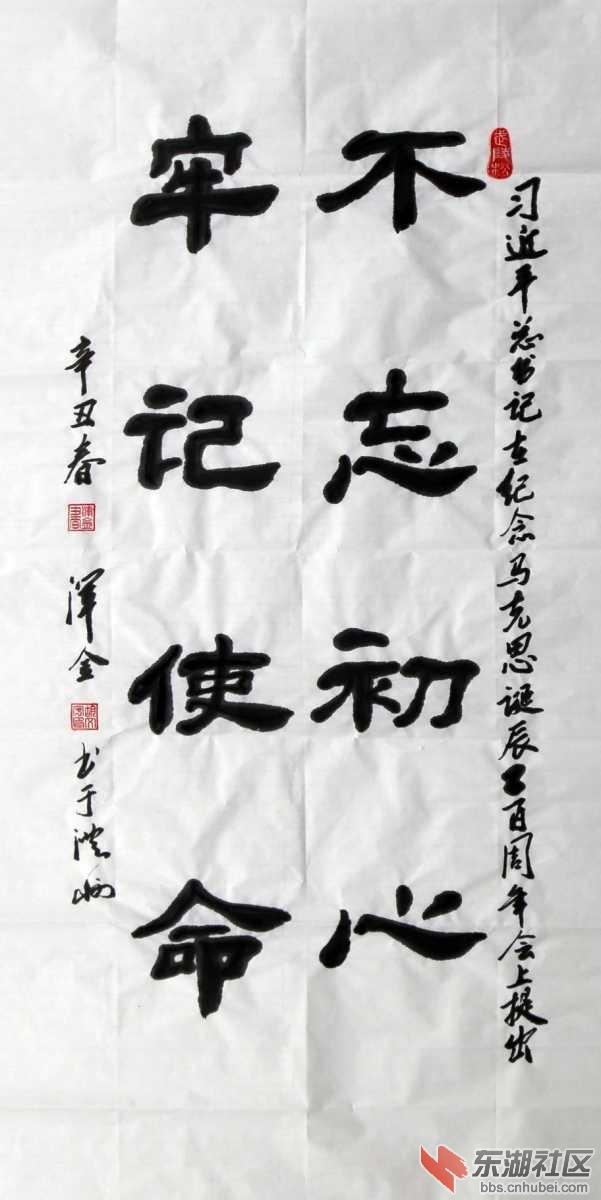 习近平总书记在纪念马克思诞辰二百周年会上提出
不忘初心
牢记使命
辛丑春
泽金
书于
东湖社区
bbs.cnhubei.com